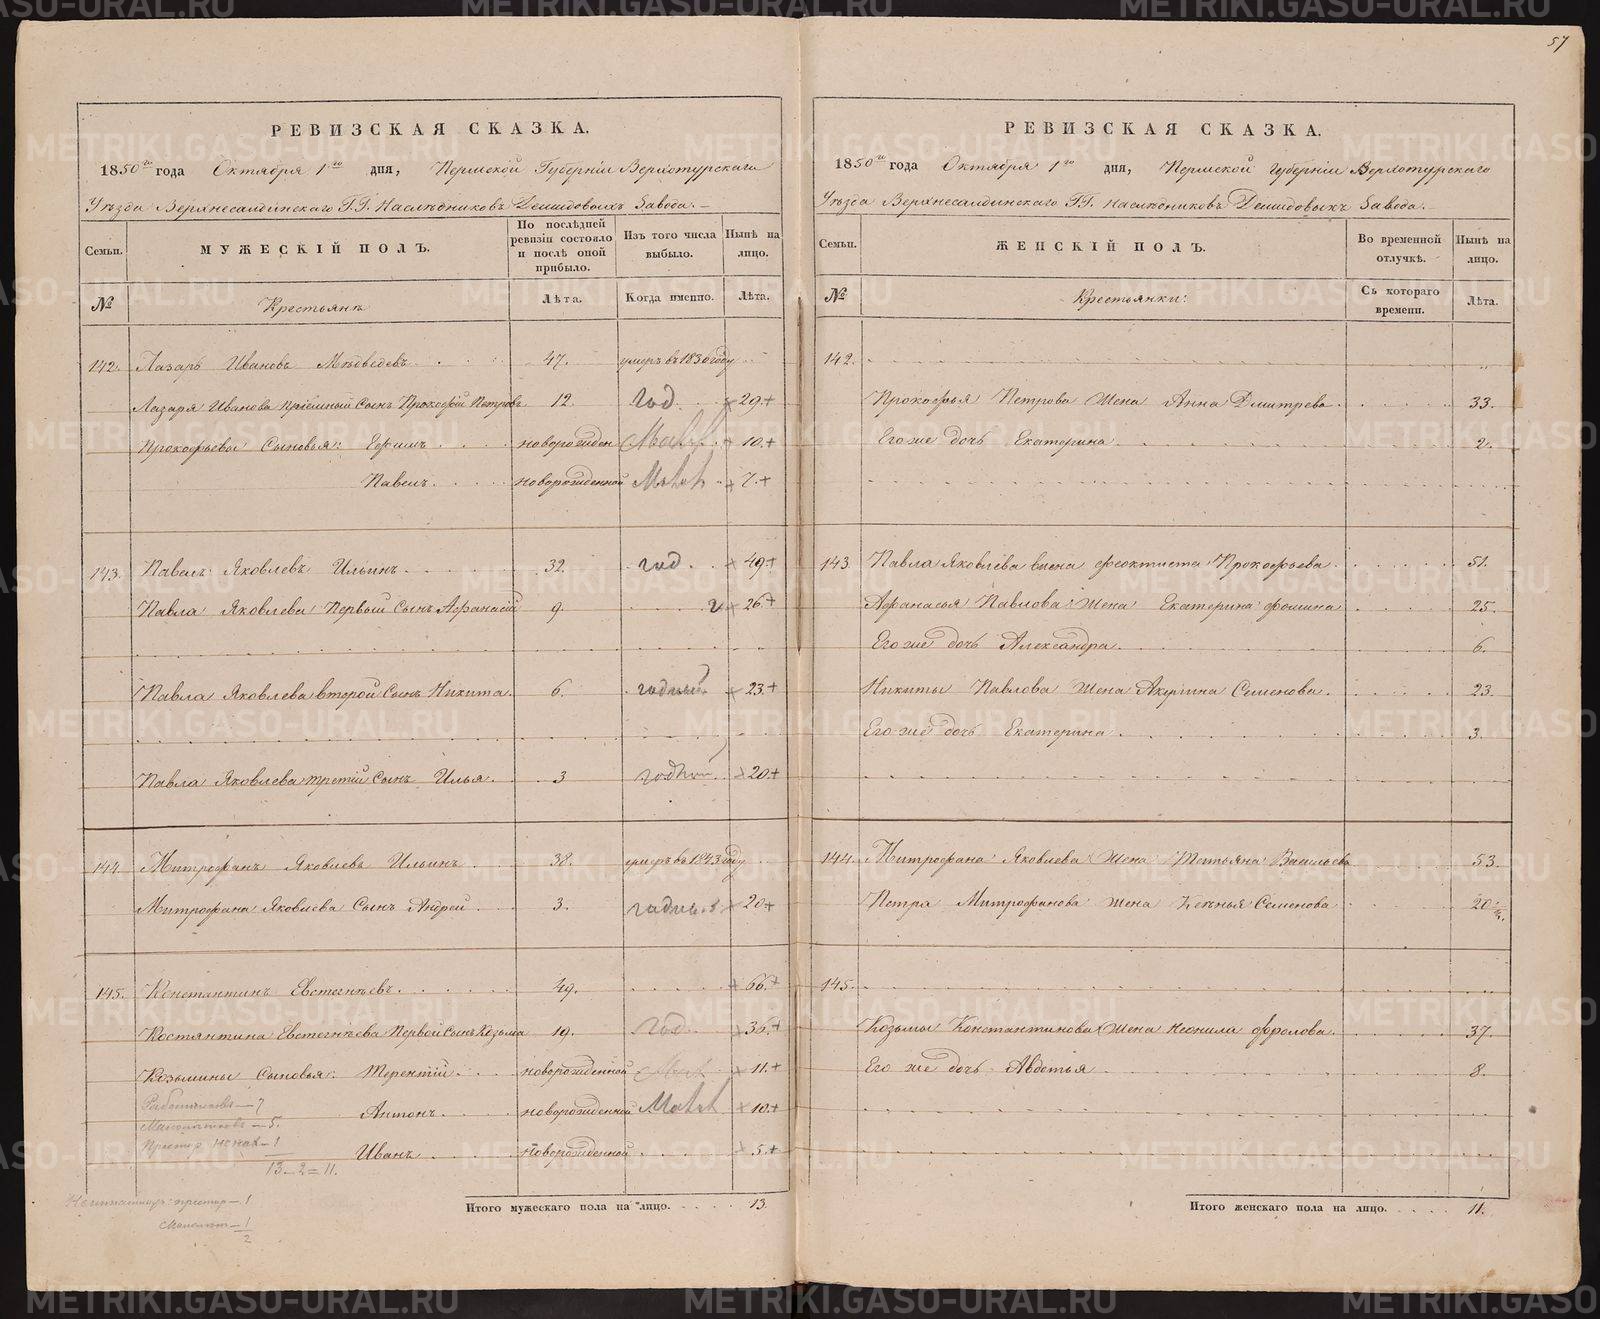 57
РЕВИЗСКАЯ СКАЗКА.
1850го года Октября 1го дня, Пермской Губерніи Верхотурскаго
Уѣзда Верхнесалдинскаго Г.Г. Наслѣдниковъ Демидовыхъ Завода.
Семьи. МУЖЕСКІЙ ПОЛЪ. По послѣдней ревизіи состояло и послѣ оной прибыло. Изъ того числа выбыло. Нынѣ на лицо.
№ Крестьянъ Лѣта. Когда именно. Лѣта.
142. Лазарь Ивановъ Мѣдведевъ 47. умеръ въ 1836 году
Лазаря Иванова приёмный Сынъ Прокофій Петровъ 12. год 29.+
Прокофьевы Сыновья: Ефимъ новорожден 10.+
Павелъ новорожденной 7.+
143. Павелъ Яковлевъ Ильинъ 32. год 49.+
Павла Яковлева Первый Сынъ Афанасій 9. 26.+
Павла Яковлева второй Сынъ Никита 6. годный 23.+
Павла Яковлева третій Сынъ Илья 3 годной 20.+
144. Митрофанъ Яковлевъ Ильинъ 38. умеръ въ 1843 году
Митрофана Яковлева Сынъ Андрей 3. 20+
145. Константинъ Евстегнѣевъ 49. 66.+
Костянтина Евстегнѣева Первой Сынъ Козьма 19. год 36.+
Козьмины Сыновья: Терентій новорожденной 11.+
Антонъ новорожденной 10.+
Иванъ новорожденной 5.+
13–2=11.
Итого мужескаго пола на лицо. 13.
РЕВИЗСКАЯ СКАЗКА.
1850го года Октября 1го дня, Пермской Губерніи Верхотурскаго
Уѣзда Верхнесалдинскаго Г.Г. Наслѣдниковъ Демидовыхъ Завода.
Семьи. ЖЕНСКІЙ ПОЛЪ. Во временной отлучкѣ. Нынѣ на лицо.
№ Крестьянки: Съ котораго времени. Лѣта.
142.
Прокофья Петрова Жена Анна Дмитрева 33.
Его же дочь Екатерина 2.
143. Павла Яковлева жена Феоктиста Прокофьева 51.
Афанасья Павлова Жена Екатерина Фомина 25.
Его же дочь Александра 6.
Никиты Павлова Жена Акулина Семенова 23.
Его же дочь Екатерина 3.
144. Митрофана Яковлева Жена Татьяна Васильева 53.
Петра Митрофанова Жена Семенова 20
145.
Козьмы Константинова Жена Неонила Фролова 37.
Его же дочь Авдотья 8.
Итого женскаго пола на лицо. 11.
METRIKI.GASO-URAL.RU